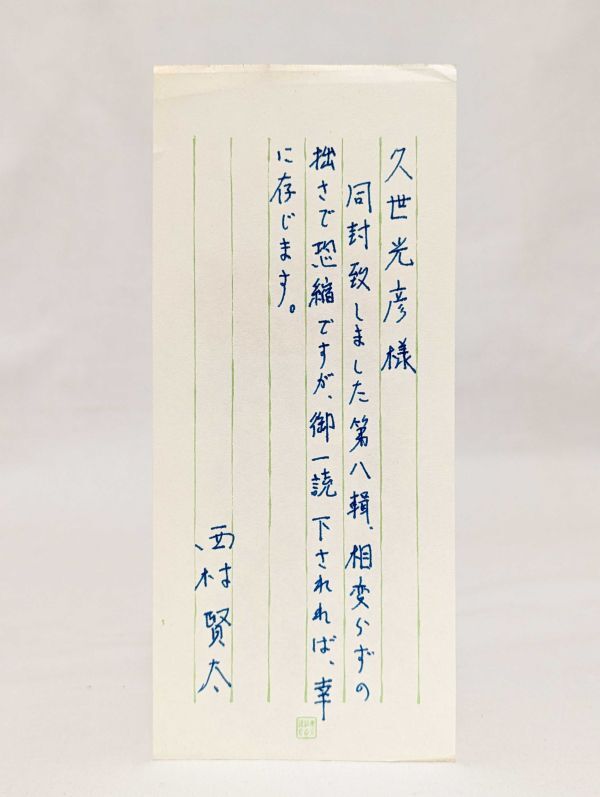 久世光彦様
同封致しました第八輯、相変らずの
拙さで恐縮ですが、御一読下されれば、幸
に存じます。
西村賢太